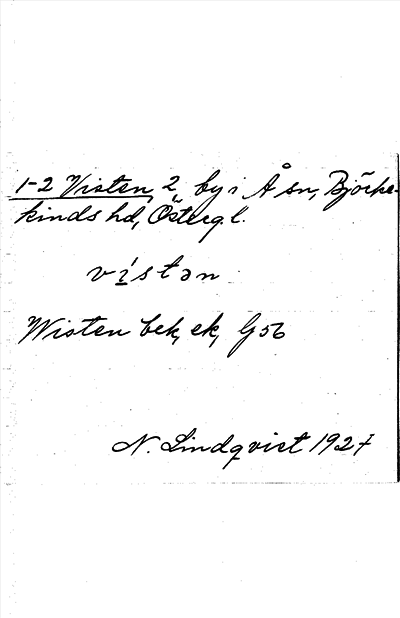 1-2 Visten, 2, by i Å sn, Björke-
kinds hd, Östergl.
vístən
Wisten bek, ek, G 56
N. Lindqvist 1927